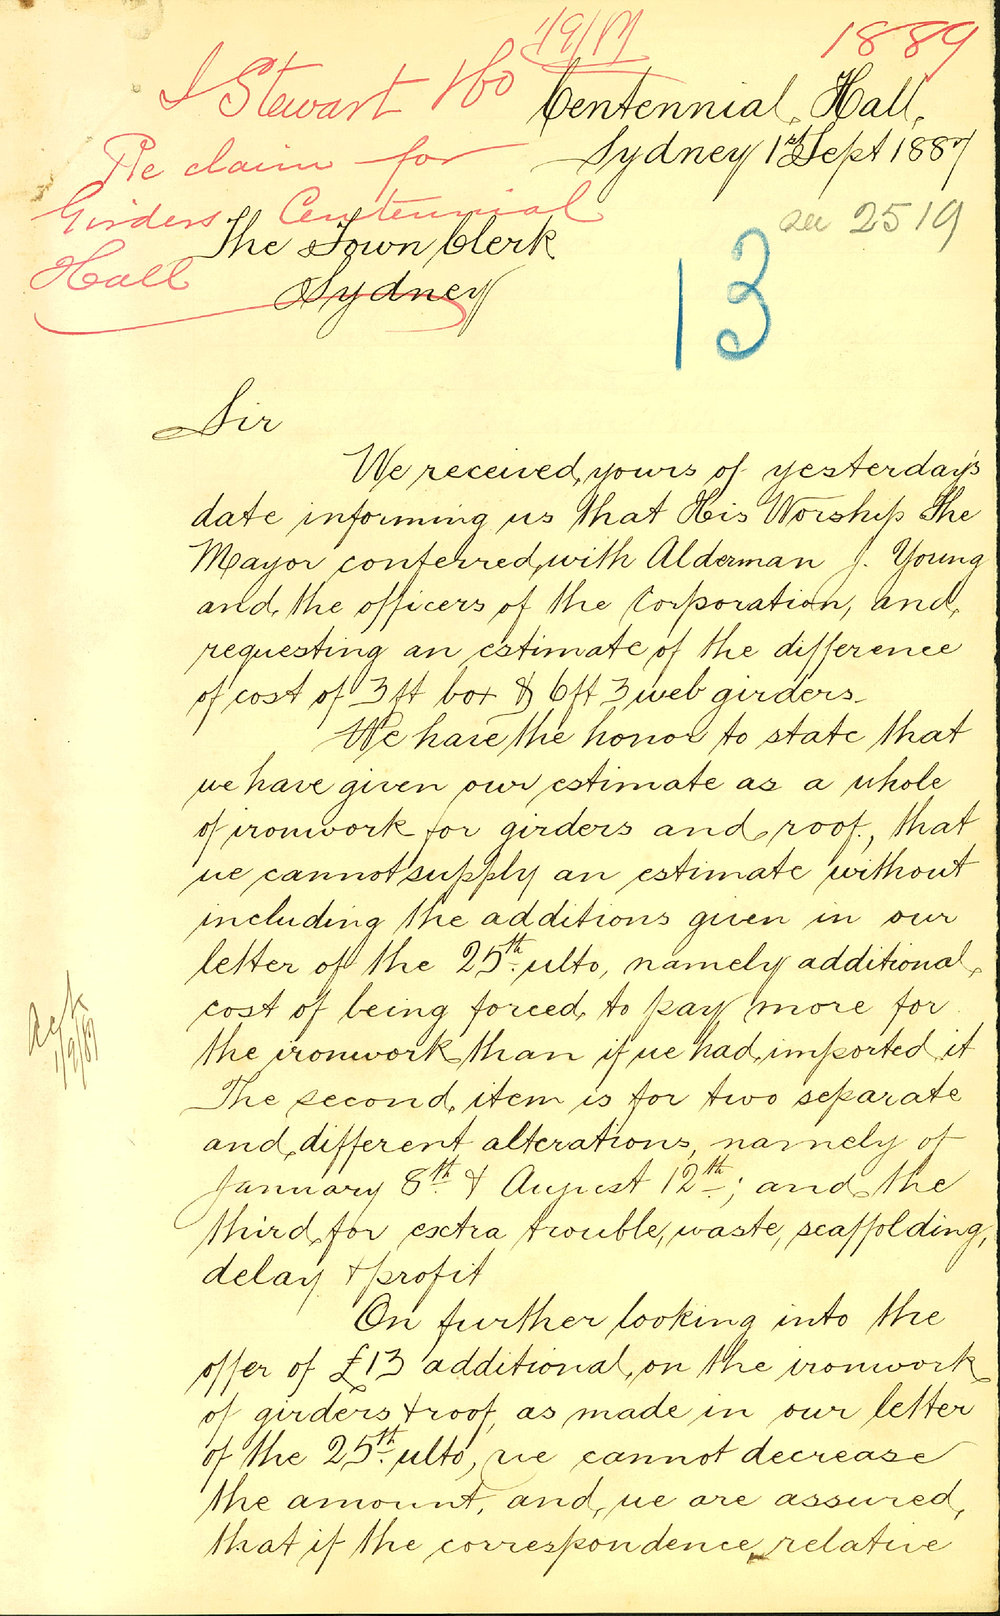 1/9/87
1889
J Stewart & Co
Re claim for
Girders Centennial
Hall
Centennial Hall,
Sydney 1st Sept 1887
see 2519
13
The Town Clerk
Sydney
Sir
We received yours of yesterday's
date informing us that His Worship The
Mayor conferred with Alderman J. Young
and the officers of the Corporation, and
requesting an estimate of the difference
of cost of 3ft box & 6ft 3 web girders.
We have the honor to state that
we have given our estimate as a whole
of ironwork for girders and roof, that
we cannot supply an estimate without
including the additions given in our
letter of the 25th ulto, namely additional
cost of being forced to pay more for
the ironwork than if we had imported it
The second item is for two separate
and different alterations, namely of
January 8th & August 12th; and the
third for extra trouble, waste, scaffolding,
delay & profit
On further looking into the
offer of £13 additional on the ironwork
of girders & roof, as made in our letter
of the 25th ulto, we cannot decrease
the amount, and we are assured,
that if the correspondence relative
Ack
1/9/87